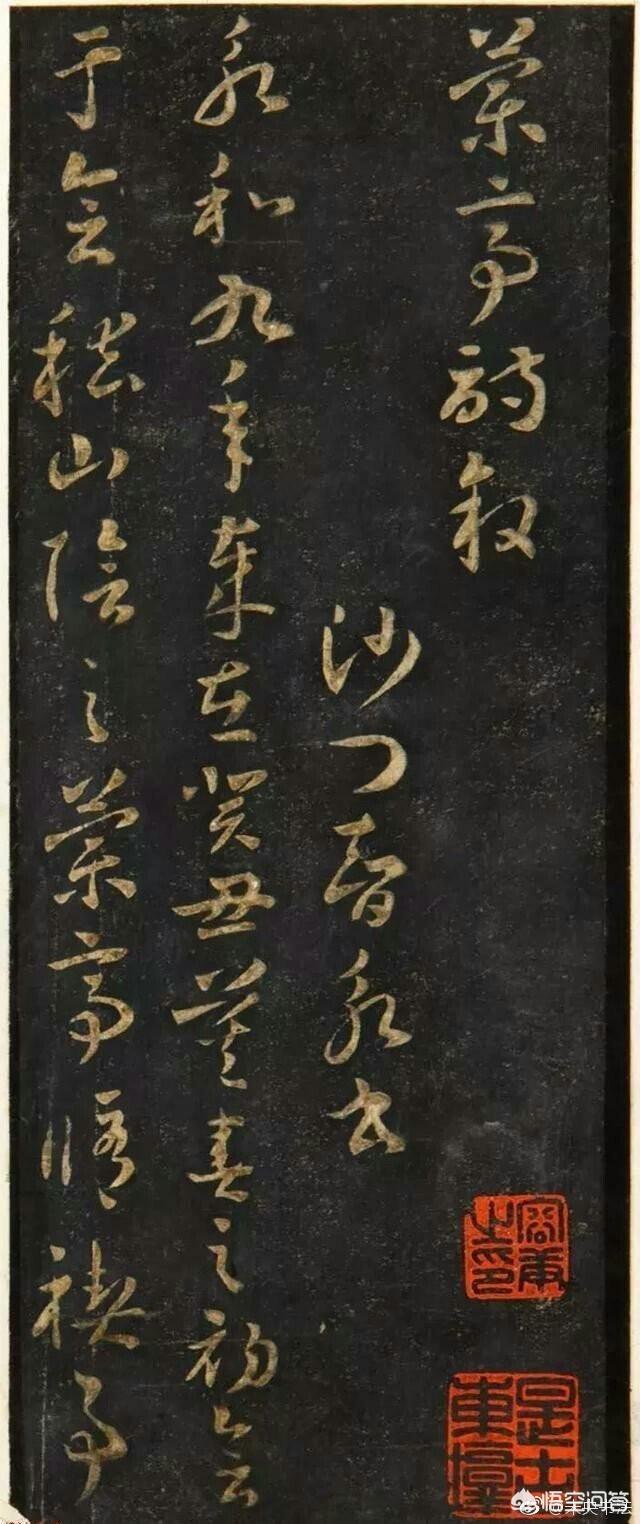 蘭亭詩敘
沙門智永書
永和九年歲在癸丑暮春之初會
于會稽山陰之蘭亭脩禊事
悟空问答